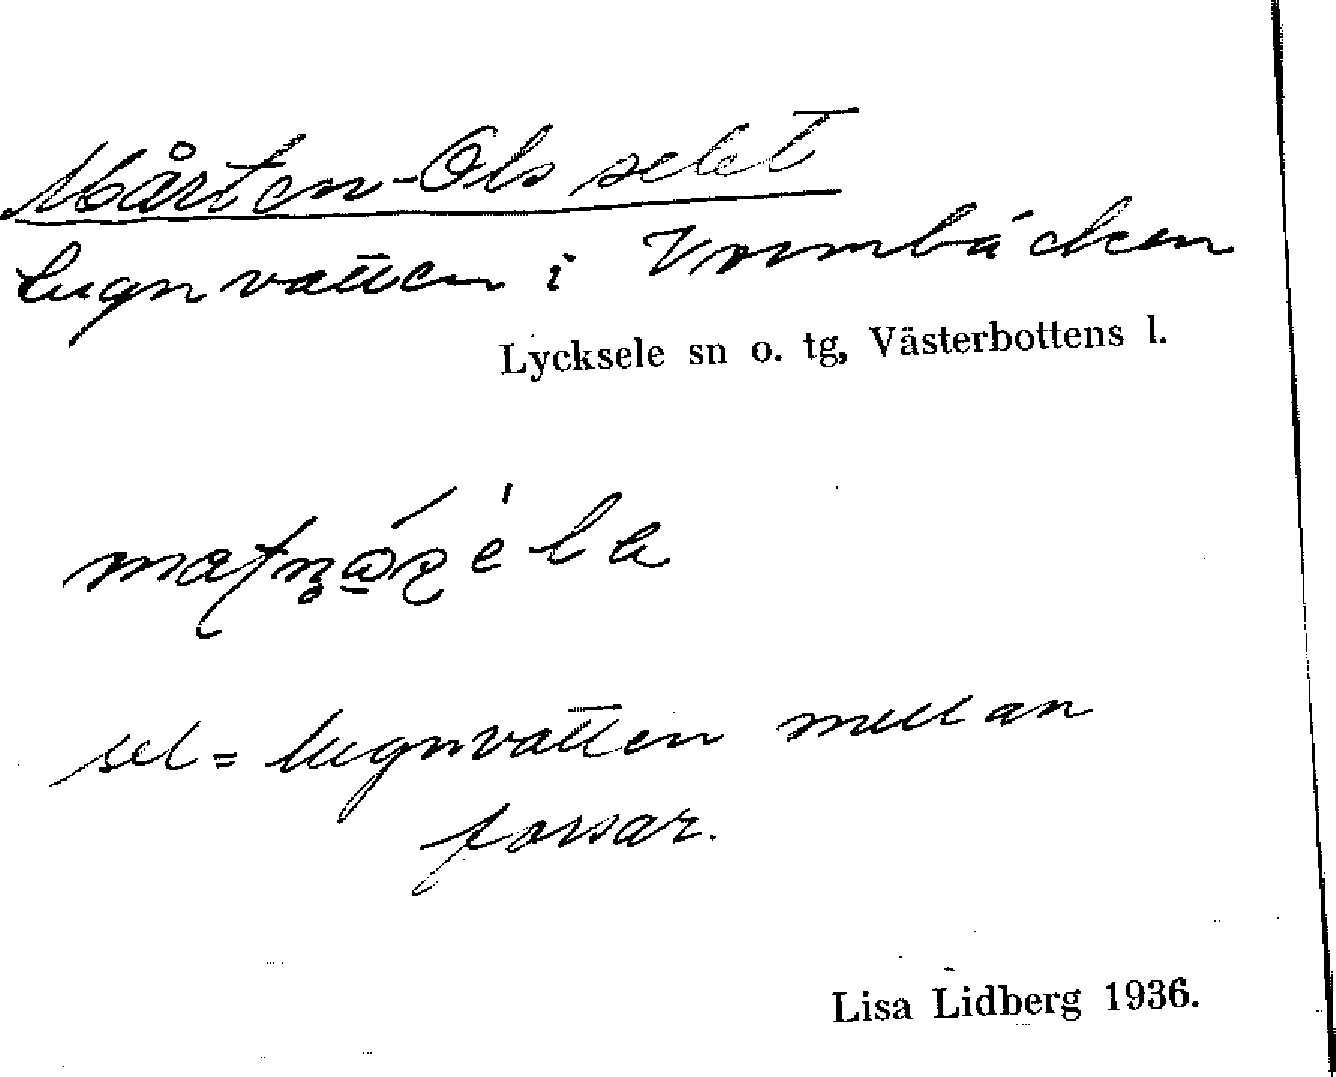 Mårten-Ols selet
Lugnvatten i Vrmbäcken
Lycksele sn o. tg, Västerbottens l.
sel = lugnvatten mellan
forsar.
Lisa Lidberg 1936.